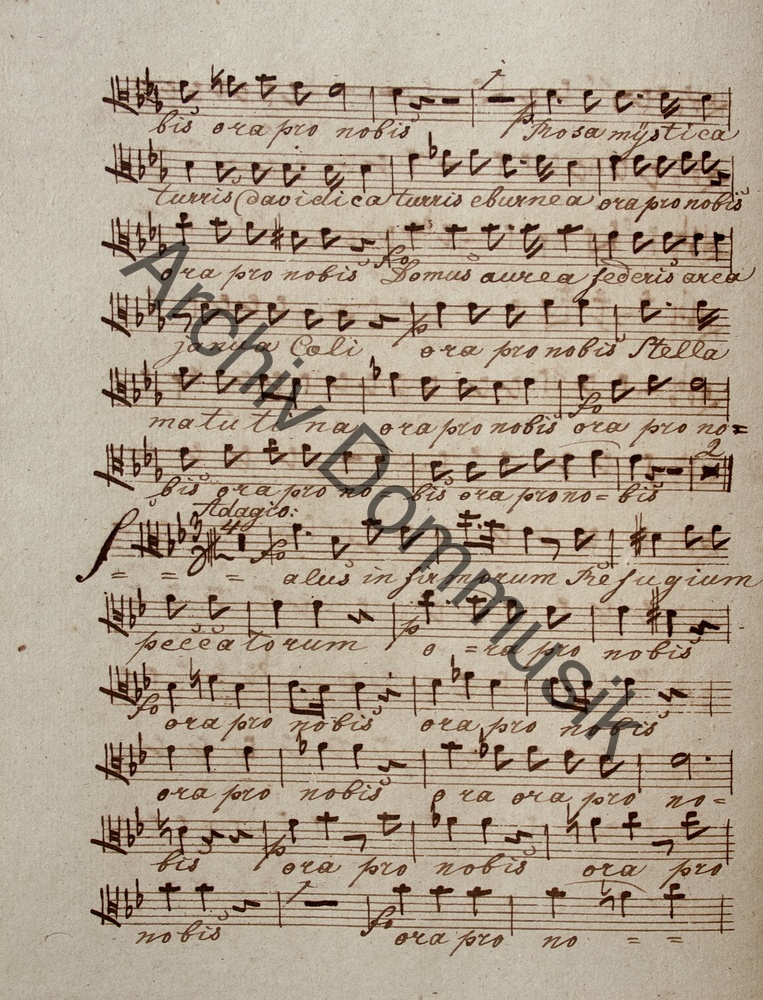 1
bis ora pro nobis p Rosa mÿstica
turris Davidica turris eburnea ora pro nobis
ora pro nobis fo Domus aurea federis arca
janua Coli p ora pro nobis Stella
matuti na ora pro nobis fo ora pro no=
2
bis ora pro no = bis ora pro no = bis
Adagio:
3 4 fo
= = = alus in firmorum Refugium
peccatorum p o = ra pro nobis
fo ora pro nobis ora pro nobis
ora pro nobis o ra ora pro no=
bis p ora pro nobis ora pro
1
nobis fo ora pro no = =
Archiv Dommusik